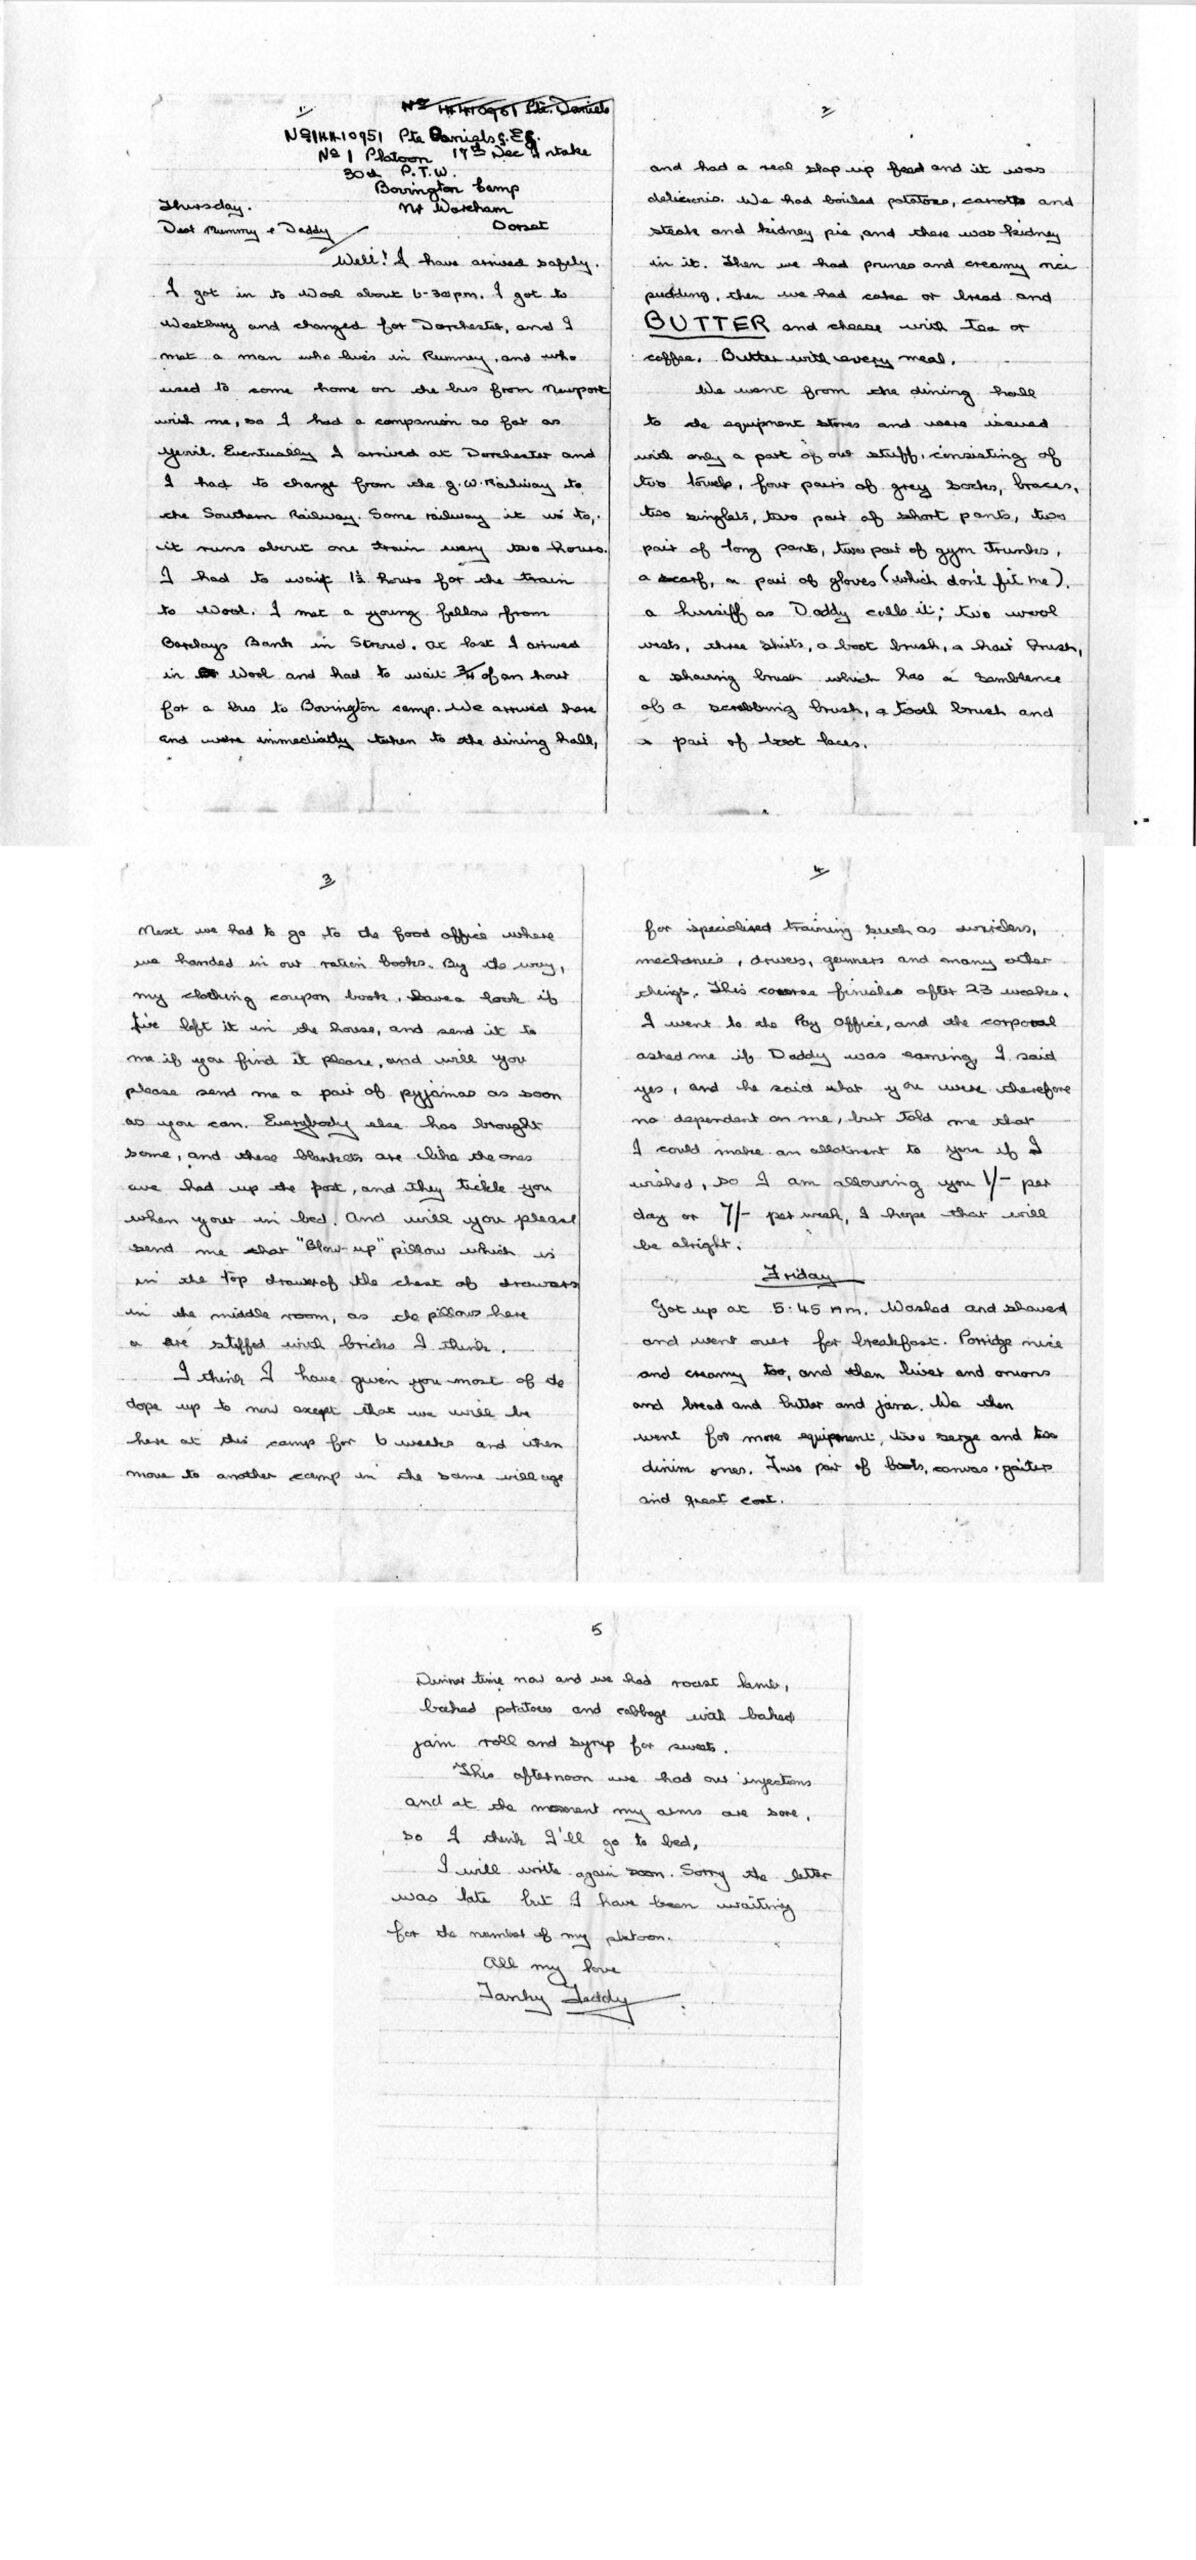 1
No 14410951 Pte. Daniels
No 14410951 Pte Daniels g. E g.
No 1 Platoon 17th Dec Intake
30th P.T.W.
Bovington Camp
Nr Wareham
Dorset
Thursday.
Dear Mummy & Daddy
Well! I have arrived safely.
I got in to Wool about 6-30pm. I got to
Westbury and changed for Dorchester, and I
met a man who lives in Rumney, and who
used to come home on the bus from Newport
with me, so I had a companion as far as
Yeovil. Eventually I arrived at Dorchester and
I had to change from the G.W. Railway to
the Southern Railway. Some railway it is to,
it runs about one train every two hours.
I had to wait 1½ hours for the train
to Wool. I met a young fellow from
Barclays Bank in Stroud. At last I arrived
in Wool and had to wait ¾ of an hour
for a bus to Bovington camp. We arrived here
and were immediatly taken to the dining hall,
2
and had a real slap up feed and it was
delicious. We had boiled potatoes, carrots and
steak and kidney pie, and there was kidney
in it. Then we had prunes and creamy rice
pudding, then we had cake or bread and
BUTTER and cheese with tea or
coffee. Butter with every meal.
We went from the dining hall
to the equipment stores and were issued
with only a part of our stuff, consisting of
two towels, four pairs of grey socks, braces,
two singlets, two pair of short pants, two
pair of long pants, two pair of gym trunks,
a scarf, a pair of gloves (which don't fit me).
a hussiff as Daddy calls it; two wool
vests, three shirts, a boot brush, a hair brush,
a shaving brush which has a semblence
of a scrubbing brush, a tooth brush and
a pair of boot laces.
3
Next we had to go to the food office where
we handed in our ration books. By the way,
my clothing coupon book, have a look if
I've left it in the house, and send it to
me if you find it please, and will you
please send me a pair of pyjamas as soon
as you can. Everybody else has brought
some, and these blankets are like the ones
we had up the post, and they tickle you
when your in bed. And will you please
send me that "Blow-up" pillow which is
in the top drawer of the chest of drawers
in the middle room, as the pillows here
a are stuffed with bricks I think.
I think I have given you most of the
dope up to now except that we will be
here at this camp for 6 weeks and then
move to another camp in the same village
4
for specialised training such as welders,
mechanics, drivers, gunners and many other
things. This course finishes after 23 weeks.
I went to the Pay Office, and the corporal
asked me if Daddy was earning, I said
yes, and he said that you were therefore
no dependent on me, but told me that
I could make an allotment to you if I
wished, so I am allowing you 1/- per
day or 7/- per week, I hope that will
be alright.
Friday
Got up at 5:45 Am. Washed and shaved
and went over for breakfast. Porridge nice
and creamy too, and then liver and onions
and bread and butter and jam. We then
went for more equipment, two serge and two
dinim ones. Two pair of boots, canvas gaiters
and great coat.
5
Dinner time now and we had roast lamb,
baked potatoes and cabbage with baked
jam roll and syrup for sweets.
This afternoon we had our injections
and at the moment my arms are sore,
so I think I'll go to bed,
I will write again soon. Sorry the letter
was late but I have been waiting
for the number of my platoon.
All my love
Tanky Teddy